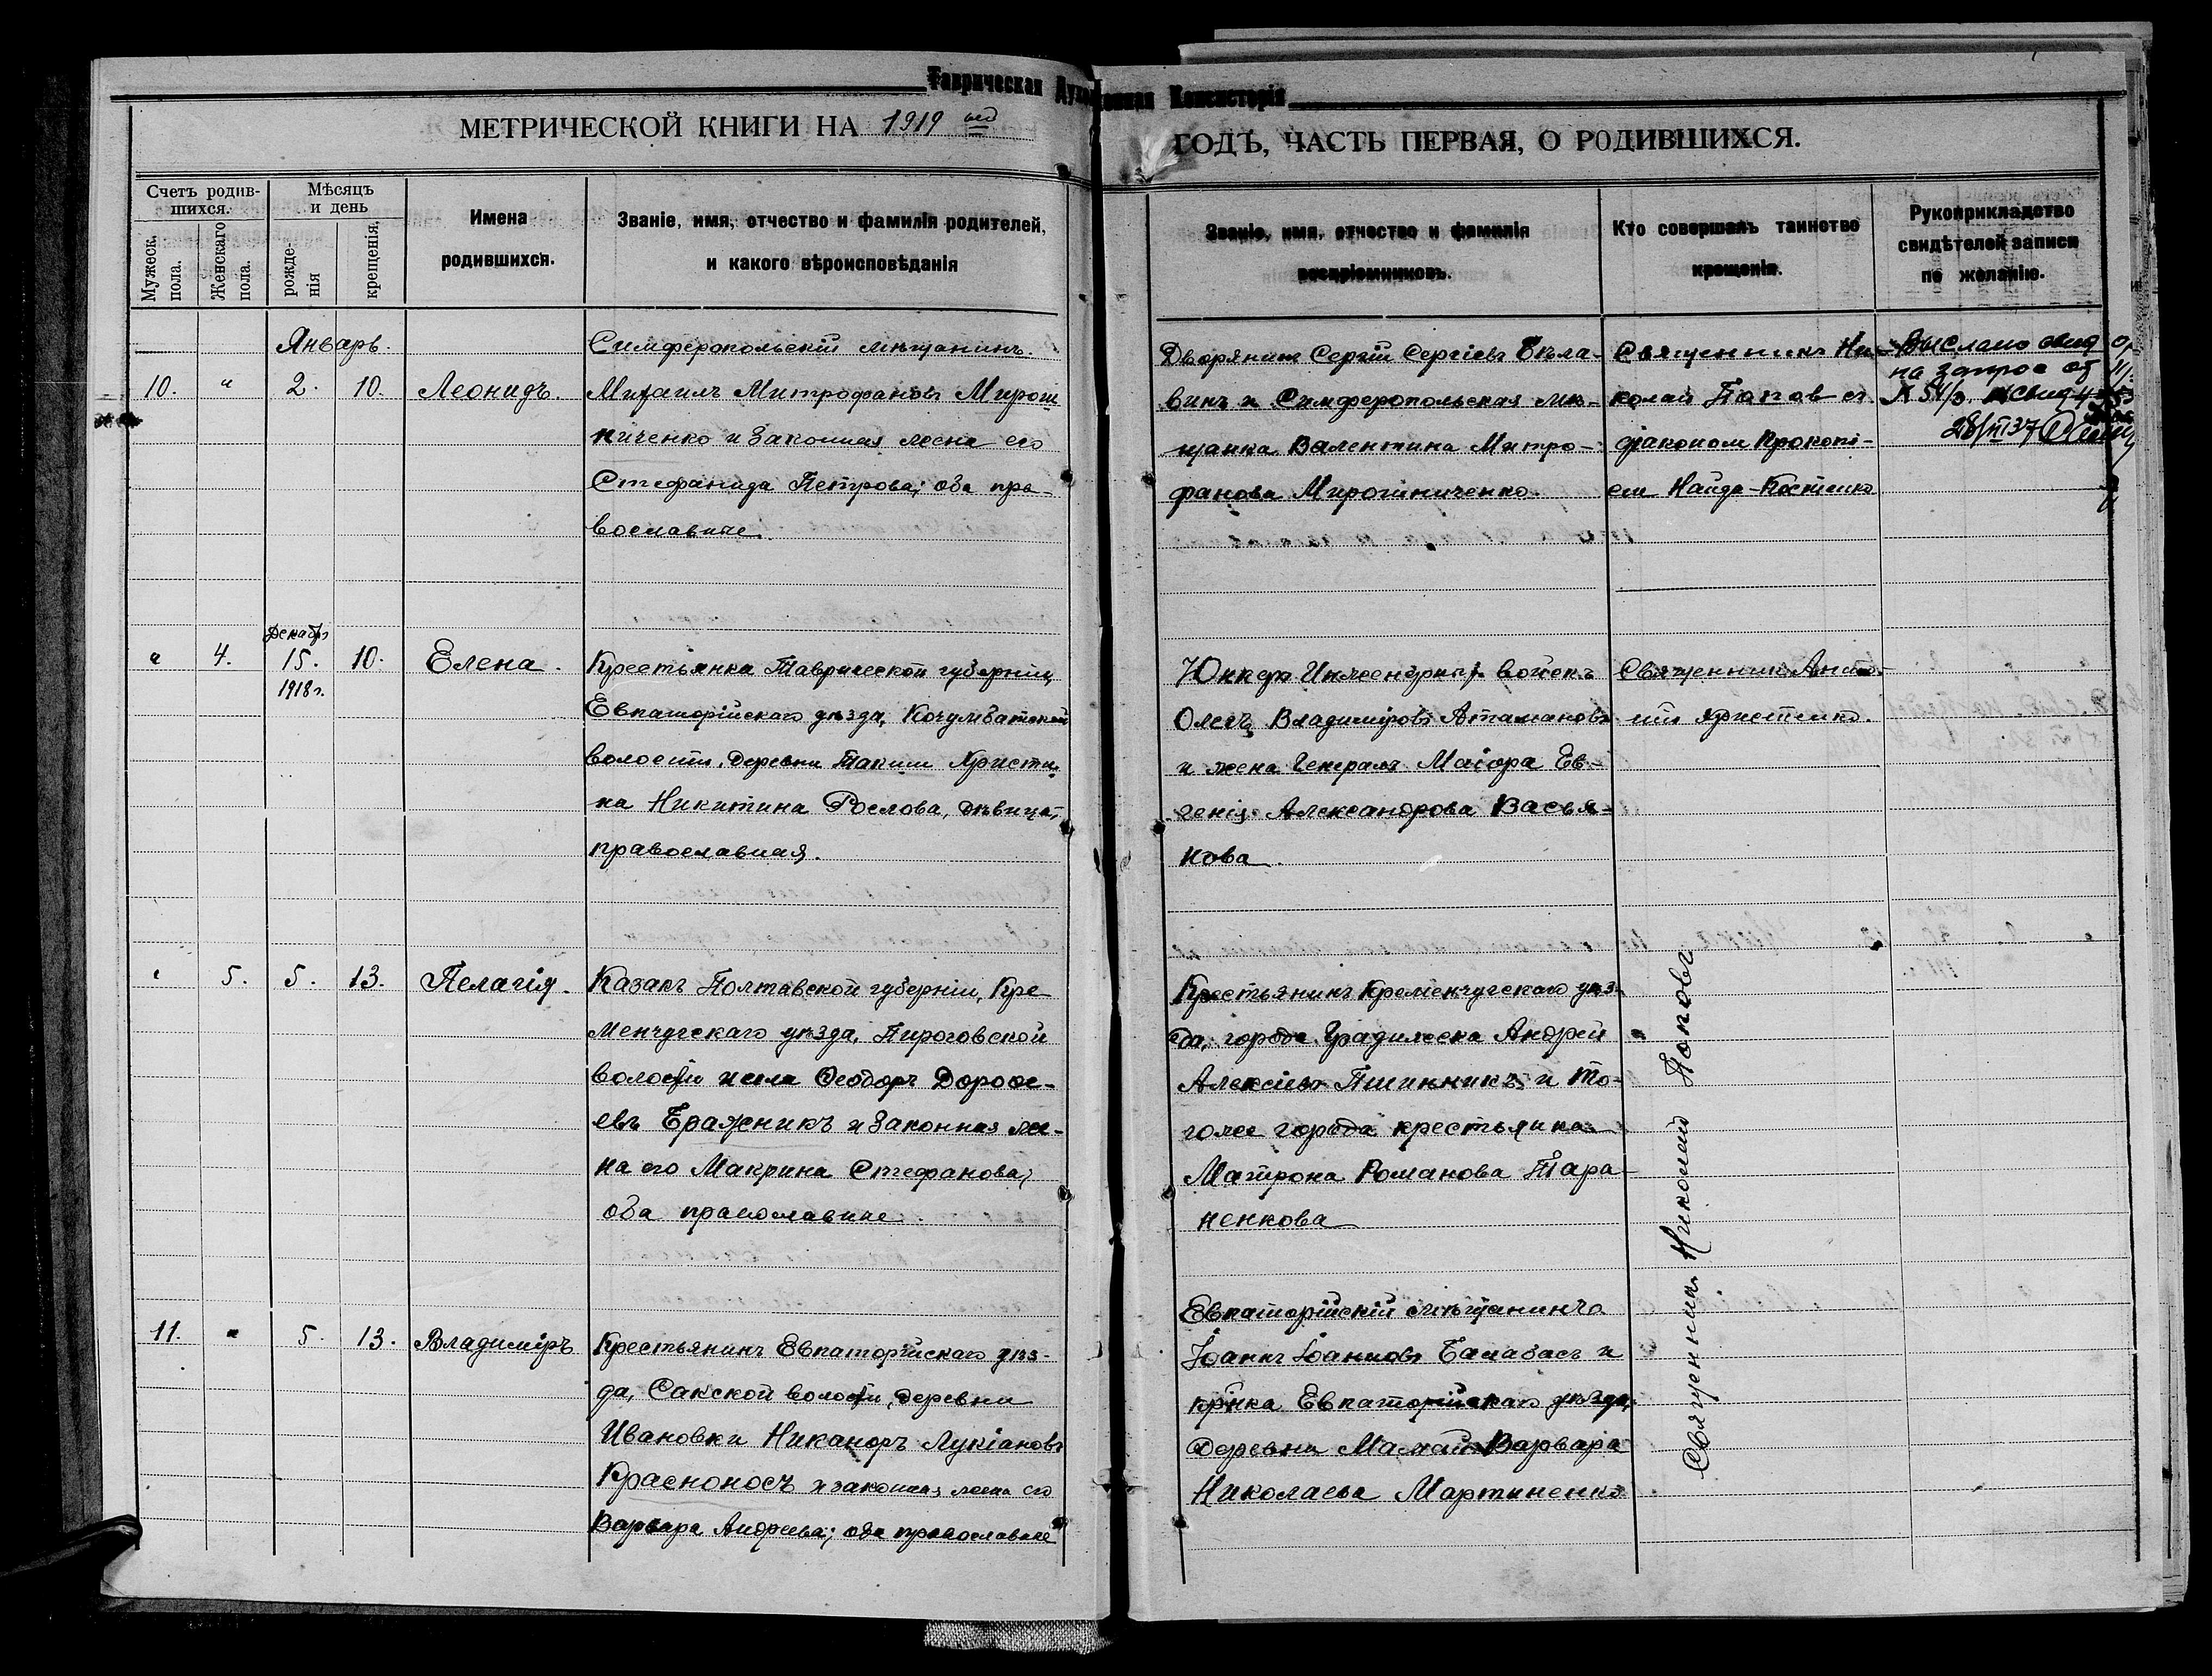 Таврическая Духовная Консисторія
МЕТРИЧЕСКОЙ КНИГИ НА 1919 ый
ГОДЪ, ЧАСТЬ ПЕРВАЯ, О РОДИВШИХСЯ.
Счетъ родив-
шихся.
Мужеск.
пола.
Женскаго
пола.
Мѣсяцъ
и день
рожде-
нія
крещенія.
Имена
родившихся.
Званіе, имя, отчество и фамилія родителей,
и какого вѣроисповѣданія
Званіе, имя, отчество и фамилія
воспріемниковъ.
Кто совершалъ таинство
крещенія.
Рукоприкладство
свидѣтелей записи
по желанію.
Январь.
10. " 2. 10. Леонидъ
Симферопольскій мѣщанинъ
Михаилъ Митрофановъ Мирош
ниченко и законная жена его
Стефанида Петрова; оба пра-
вославные.
Дворянинъ Сергій Сергіевъ Бѣла-
винъ и Симферопольская мѣ-
щанка Валентина Митро-
фанова Мирошниченко.
Священникъ Ни-
колай Поповъ съ
діакономъ Прокопі-
ем Найда-Костенко
Выслано свид
на запрос от
28/VI 37
" 4. Декабрь 15. 1918 г. 10. Елена.
Крестьянка Таврической губерніи,
Евпаторійскаго уѣзда, Кочумбатской
волости, деревни Такиш Христи-
на Никитина Рослова, дѣвица,
православная.
Юнкеръ Инженерныхъ войскъ
Олегъ Владиміровъ Атамановъ
и жена Генералъ Маіора Ев-
генія Александрова Васья-
нова.
Священникъ Анто-
ній Христенко.
" 5. 5. 13. Пелагія.
Казакъ Полтавской губерніи, Кре
менчугскаго уѣзда, Пироговской
волости и села Ѳеодоръ Дороѳе-
евъ Бражникъ и законная же-
на его Макрина Стефанова;
оба православные.
Крестьянинъ Кременчугскаго уѣз-
да, города Градижска Андрей
Алексіевъ Пшинникъ и то-
гоже города крестьянка
Матрона Романова Тара
ненкова
Священникъ Николай Поповъ
11. " 5. 13. Владиміръ
Крестьянинъ Евпаторійскаго уѣз-
да, Сакской волости, деревни
Ивановки Никаноръ Лукіановъ
Красноносъ и законная жена его
Варвара Андреева; оба православные
Евпаторійскій мѣщанинъ
Іоаннъ Іоанновъ Балабасъ и
крнка Евпаторійскаго уѣзда,
деревни Мамай Варвара
Николаева Мартиненко.